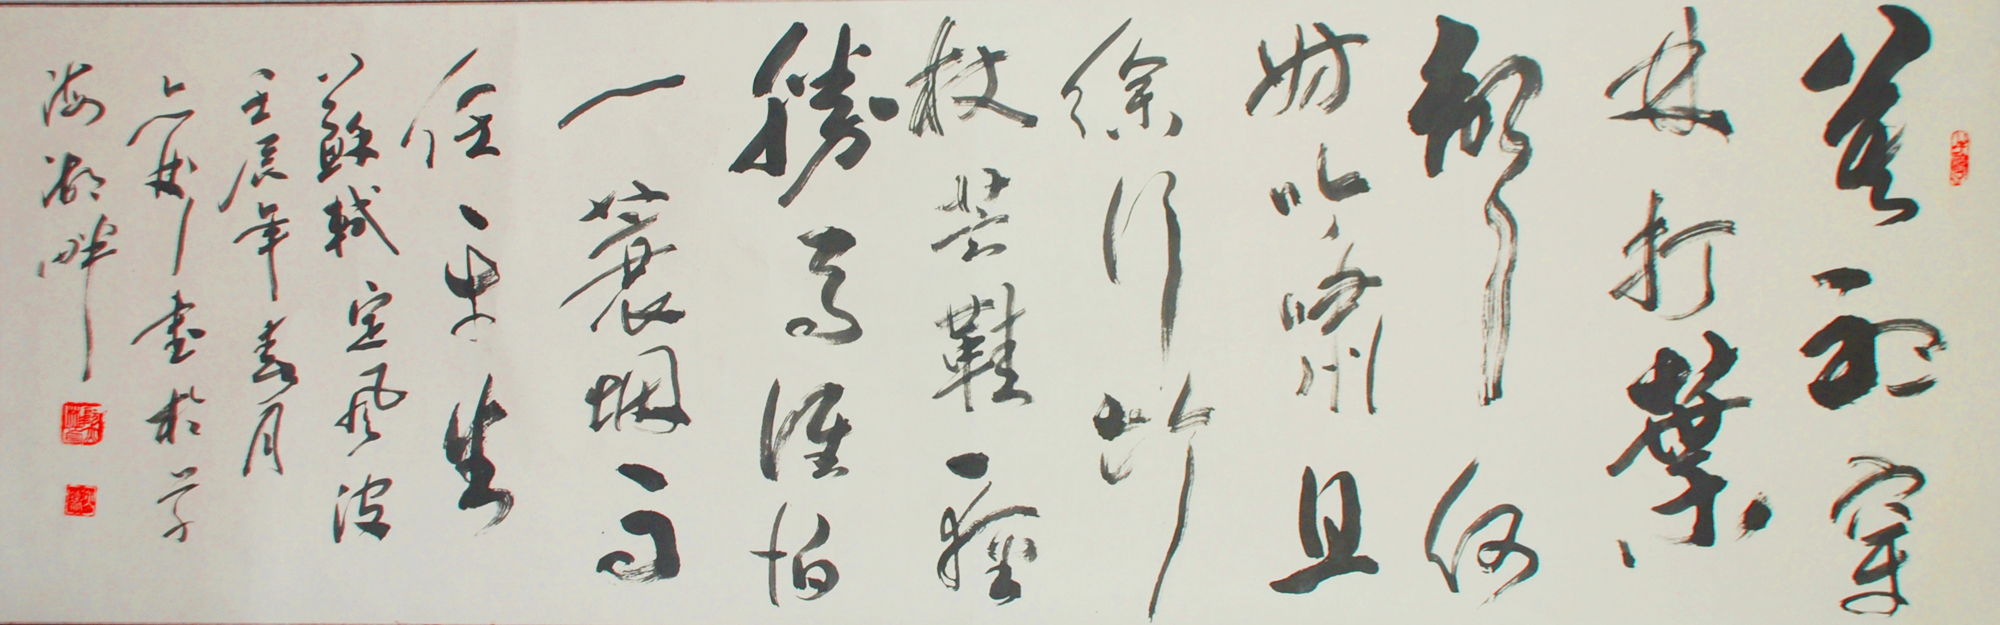 莫聽穿
林打葉
聲何
妨吟嘯且
徐行竹
杖芒鞋輕
勝馬誰怕
一蓑烟雨
任平生
蘇軾定风波
壬辰年春月
書於学
海湖畔